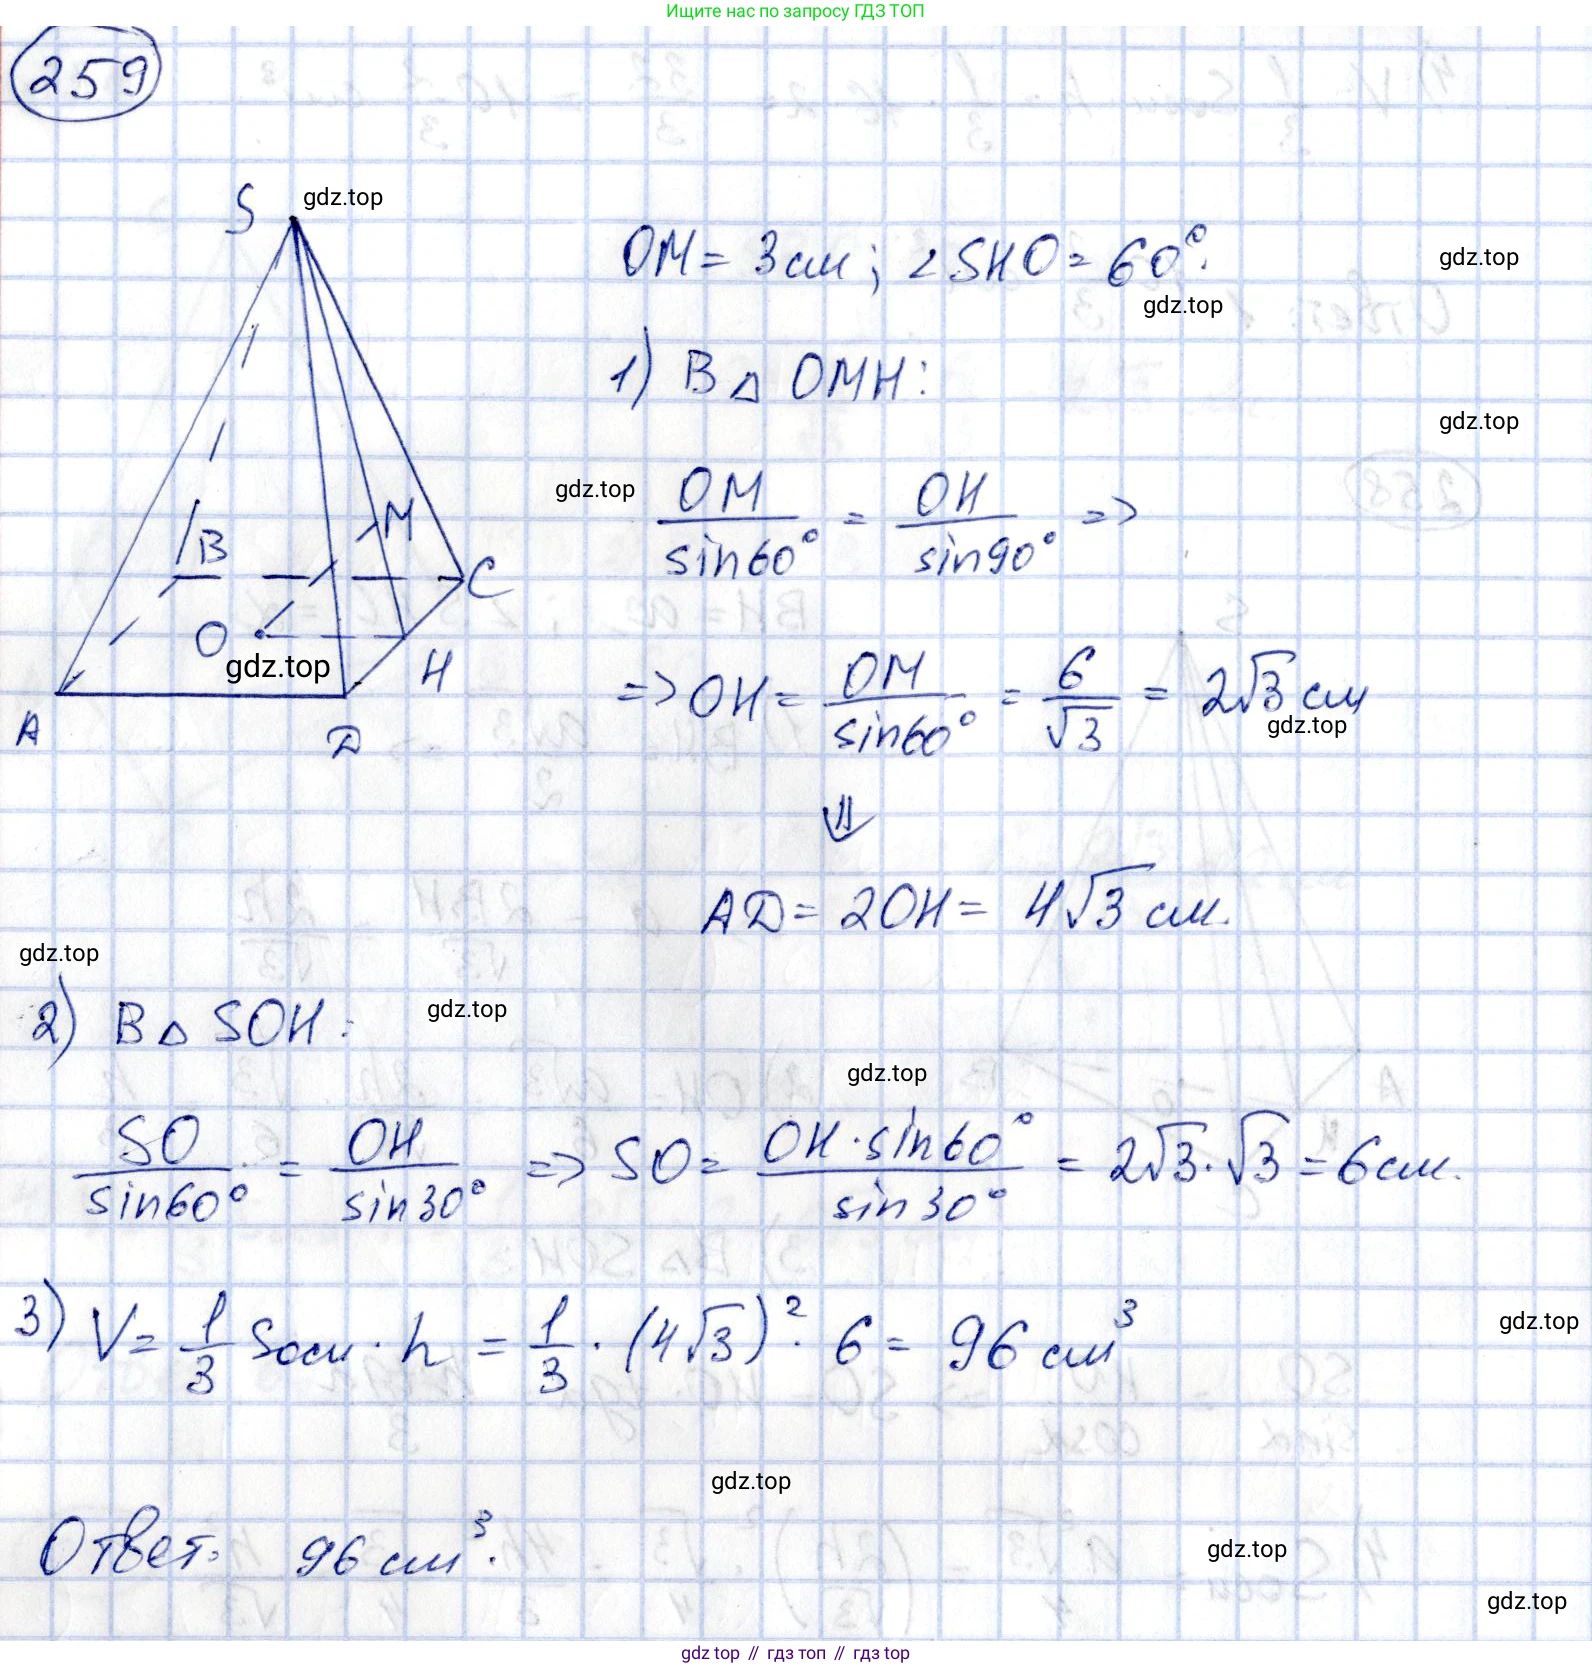 Ищите нас по запросу ГДЗ ТОП
259
S
gdz.top
OM = 3 см; ∠SHO = 60°.
gdz.top
gdz.top
1) В △ OMH:
gdz.top
gdz.top
OM/sin60° = OH/sin90° =>
M
B
C
O
gdz.top
H
A
D
=> OH = OM/sin60° = 6/√3 = 2√3 см
gdz.top
⇓
AD = 2OH = 4√3 см.
gdz.top
2) В △ SOH:
gdz.top
gdz.top
SO/sin60° = OH/sin30° => SO = OH·sin60°/sin30° = 2√3·√3 = 6 см.
3) V = 1/3 Sосн · h = 1/3 · (4√3)²· 6 = 96 см³
gdz.top
gdz.top
Ответ: 96 см³.
gdz.top
gdz.top
gdz top // гдз топ // гдз top